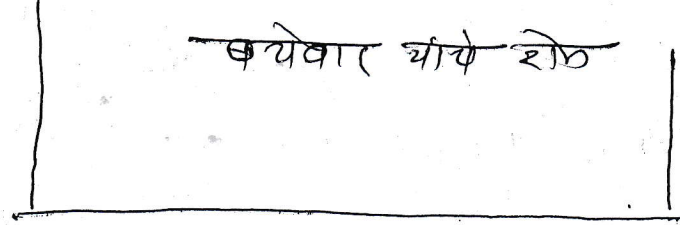 बयेवार यांचे शेत